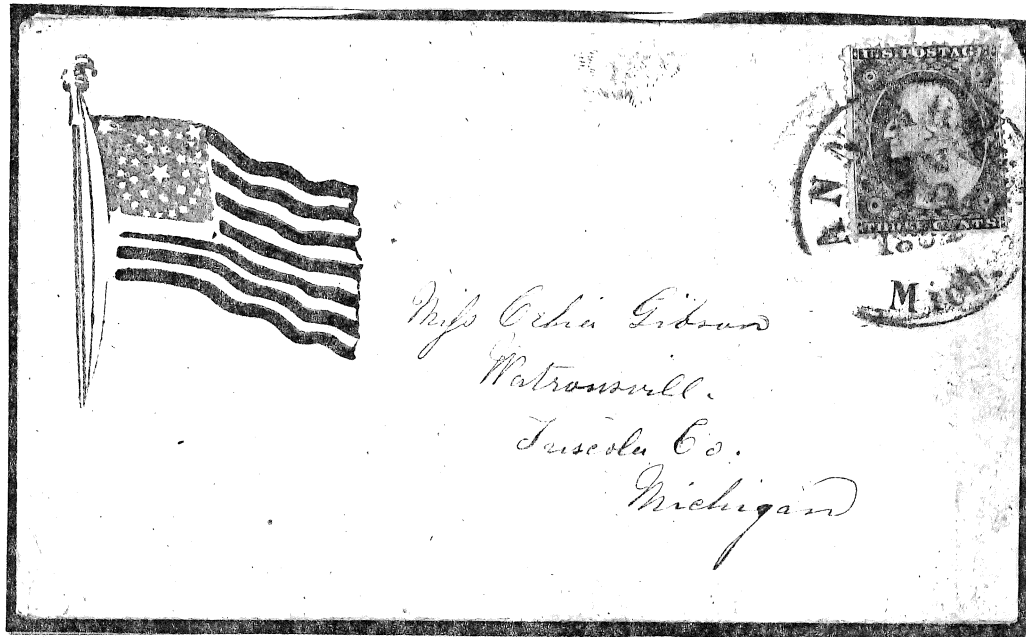 U.S. POSTAGE
THREE CENTS
ANN
186
Mich.
Miss Gibson
Watronsvill.
Tuscola Co.
Michigan